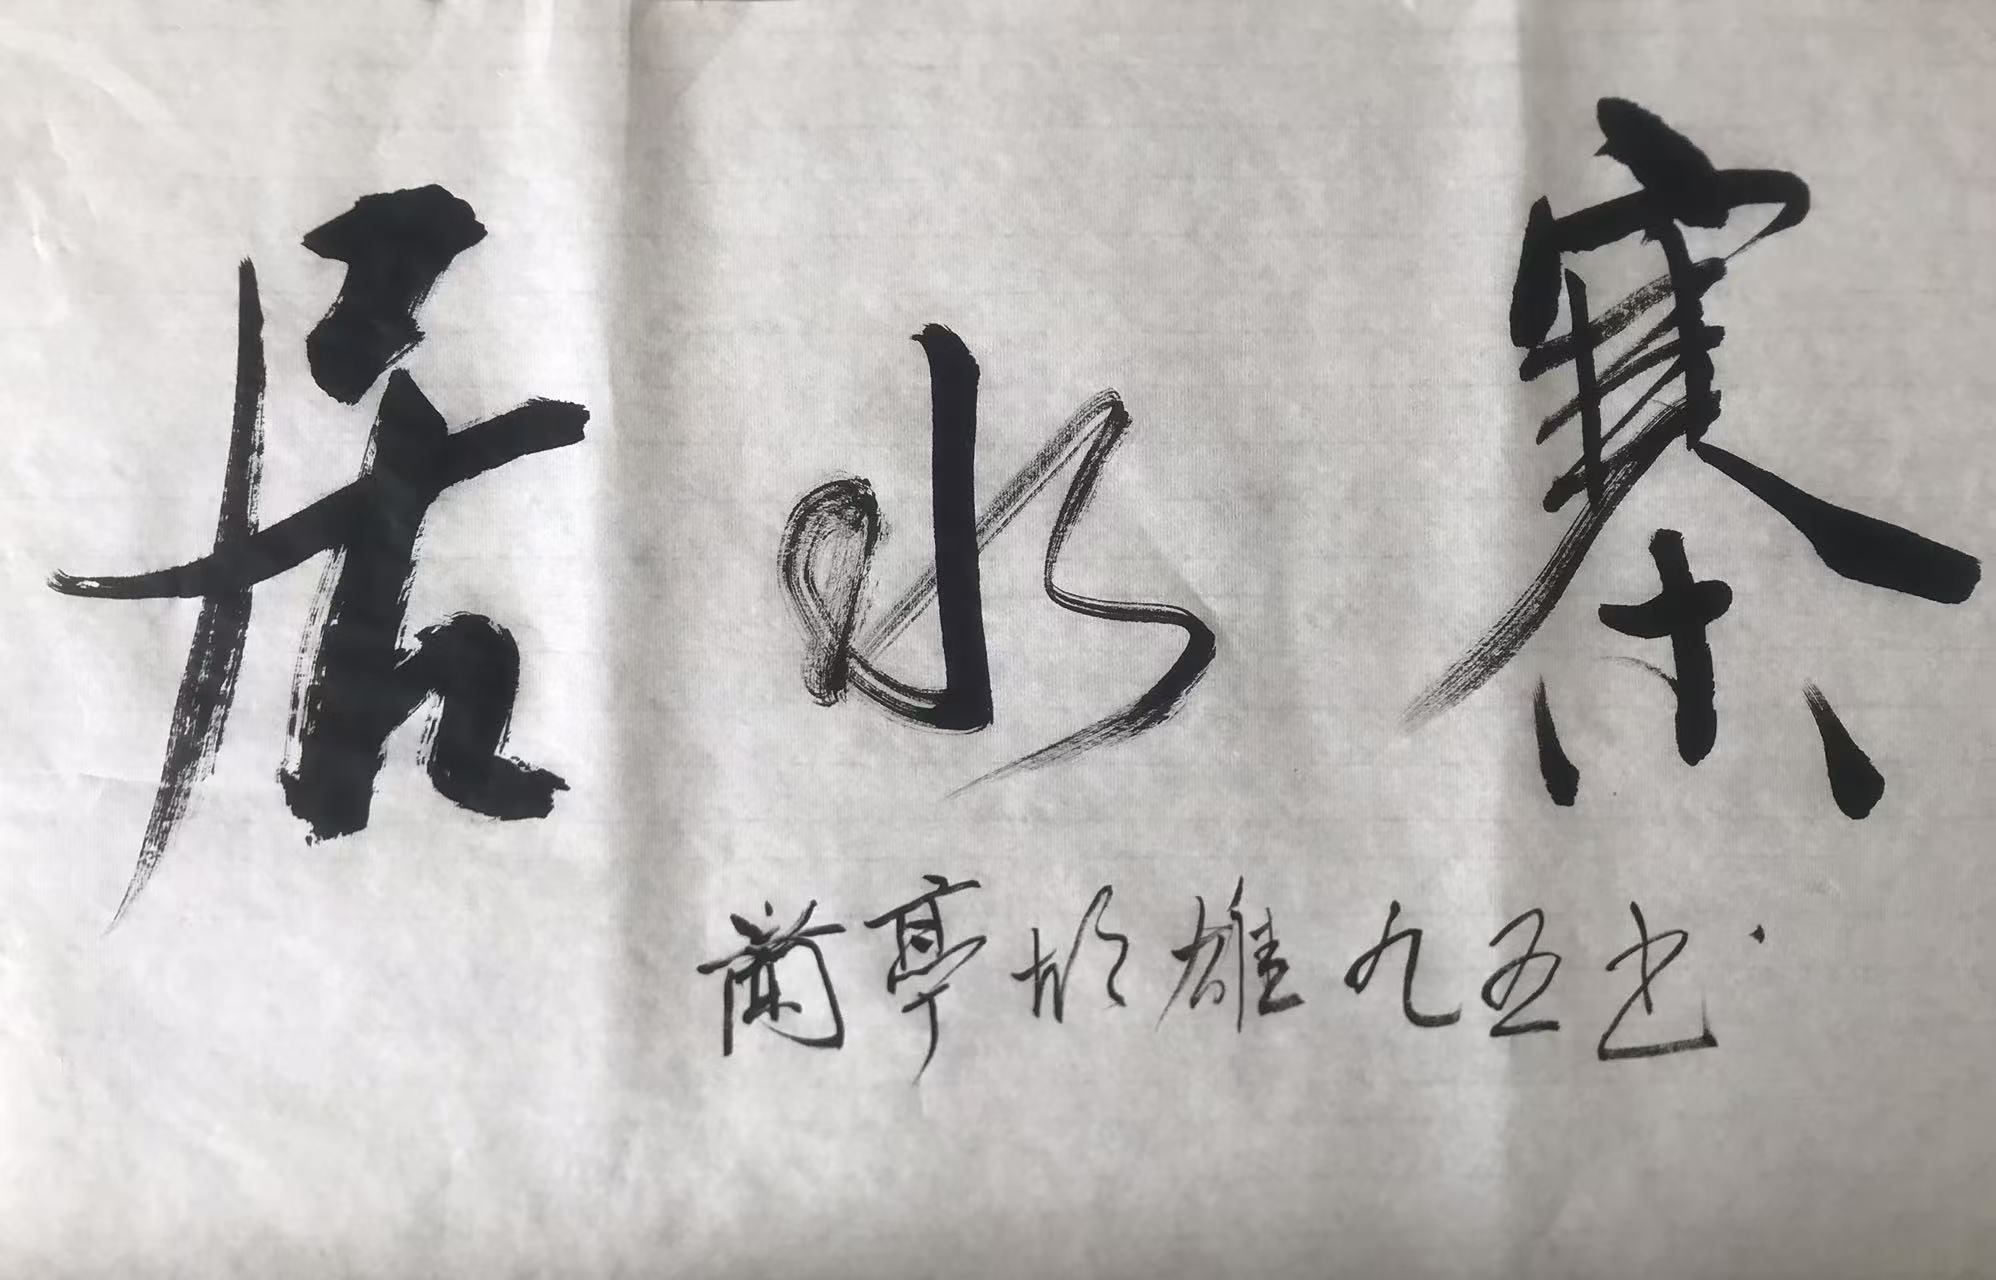 居水寨
蘭亭胡雄九五书